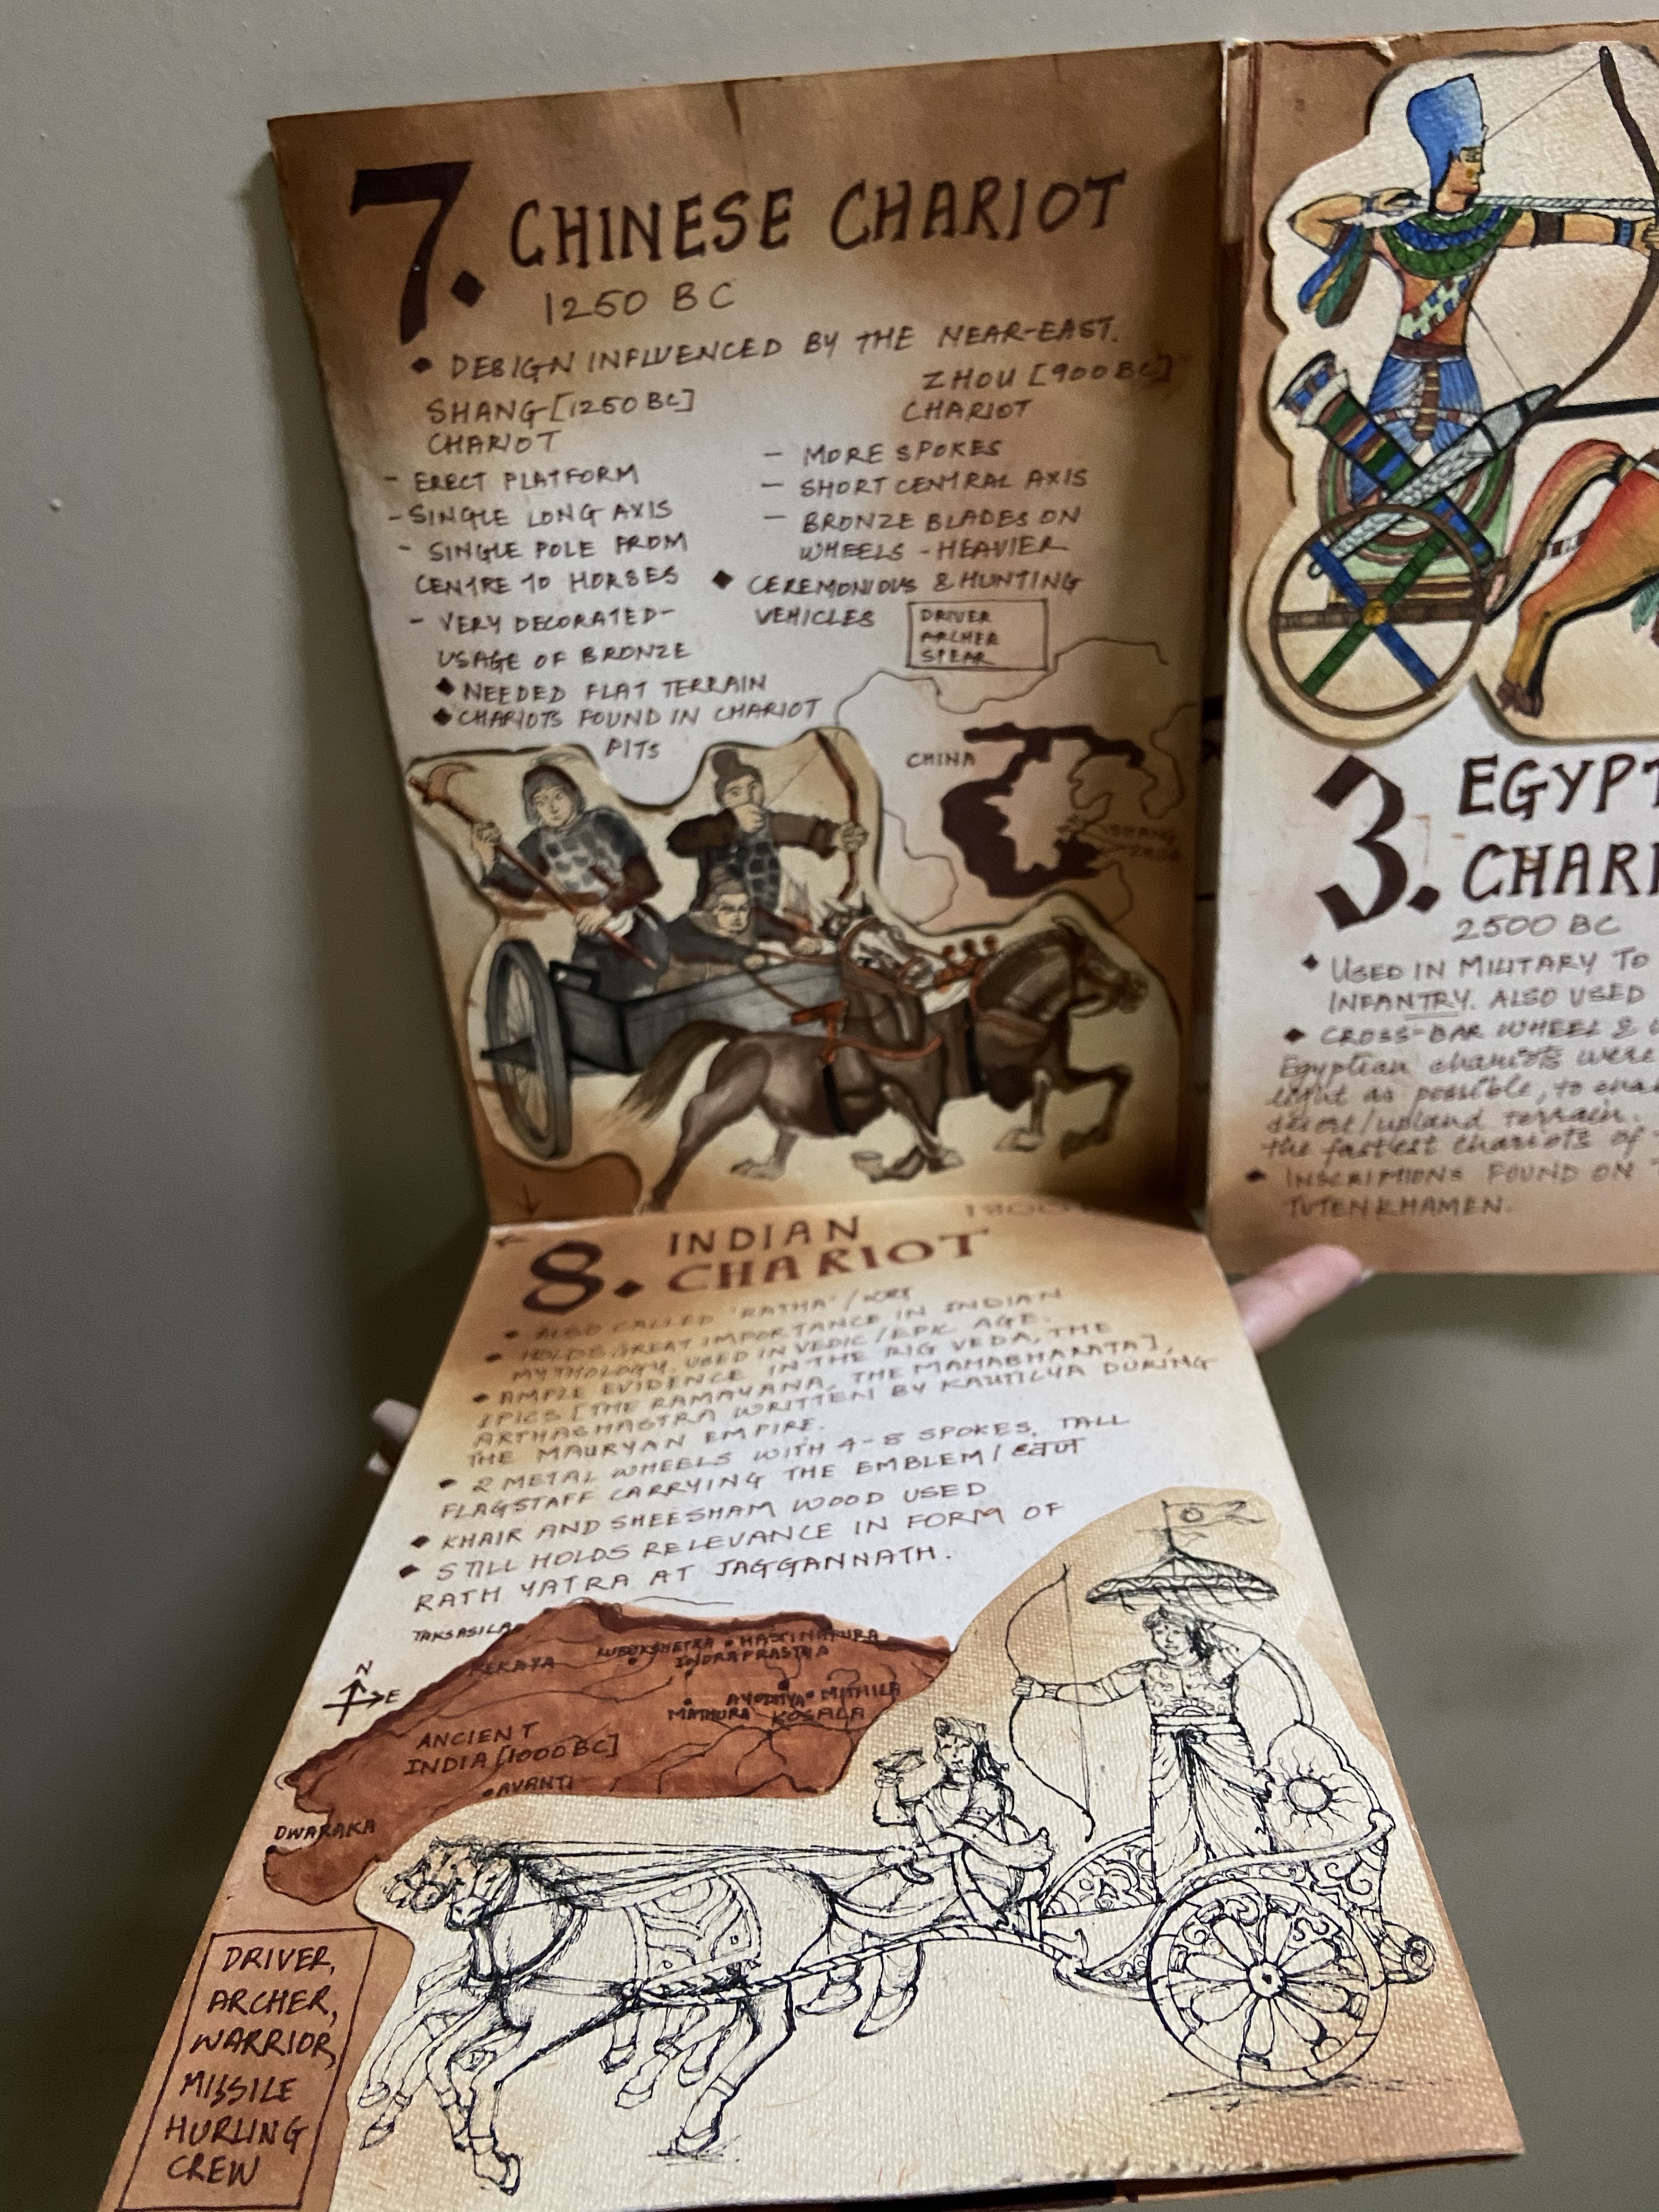 7. CHINESE CHARIOT
1250 BC
• DESIGN INFLUENCED BY THE NEAR-EAST.
SHANG [1250 BC]
CHARIOT
- ERECT PLATFORM
- SINGLE LONG AXIS
- SINGLE POLE FROM
CENTRE TO HORSES
- VERY DECORATED-
USAGE OF BRONZE
◆ NEEDED FLAT TERRAIN
◆ CHARIOTS FOUND IN CHARIOT
PITS
ZHOU [900 BC]
CHARIOT
- MORE SPOKES
- SHORT CENTRAL AXIS
- BRONZE BLADES ON
WHEELS - HEAVIER
◆ CEREMONIOUS & HUNTING
VEHICLES
DRIVER
ARCHER
SPEAR
CHINA
SHANG
ZHOU
3. EGYPT
CHARI
2500 BC
◆ USED IN MILITARY TO
INFANTRY. ALSO USED
◆ CROSS-BAR WHEEL &
Egyptian chariots were
light as possible, to
desert/upland terrain.
the fastest chariots of
◆ INSCRIPTIONS FOUND ON
TUTENKHAMEN.
8. INDIAN
CHARIOT
• ALSO CALLED 'RATHA' /
• HOLDS GREAT IMPORTANCE IN INDIAN
MYTHOLOGY. USED IN VEDIC / EPIC AGE.
• AMPLE EVIDENCE IN THE RIG VEDA, THE
EPICS [THE RAMAYANA, THE MAHABHARATA],
ARTHASHASTRA WRITTEN BY KAUTILYA DURING
THE MAURYAN EMPIRE.
• 2 METAL WHEELS WITH 4-8 SPOKES, TALL
FLAGSTAFF CARRYING THE EMBLEM /
◆ KHAIR AND SHEESHAM WOOD USED
◆ STILL HOLDS RELEVANCE IN FORM OF
RATH YATRA AT JAGGANNATH.
TAKSASILA
KEKAYA
KURUKSHETRA
HASTINAPURA
INDRAPRASTHA
AYODHYA
MITHILA
MATHURA
KOSALA
N
E
ANCIENT
INDIA [1000 BC]
AVANTI
DWARAKA
DRIVER,
ARCHER,
WARRIOR,
MISSILE
HURLING
CREW